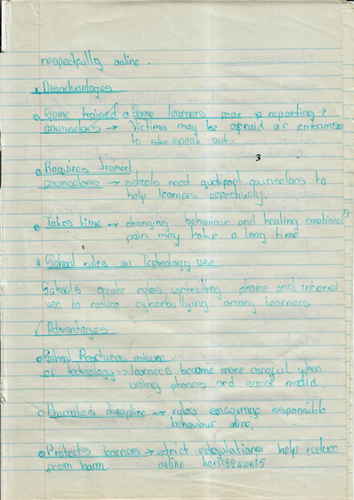 respectfully online.
* Disadvantages
o Some trained a Some learners fear reporting →
counsellors → Victims may be afraid or embarrassed
to speak out.
3
o Requires trained
counsellors → schools need qualified counsellors to
help learners effectively.
o Takes time → changing behaviour and healing emotional
pain may take a long time
* School rules on Technology use
Schools create rules phone and internet
use to reduce cyberbullying among learners
Advantages
o School Reduces misuse
of technology → learners become more careful when
using phones and social media.
o discipline → rules encourage responsible
behaviour online.
o Protects learners → strict regulations help reduce
from harm. online